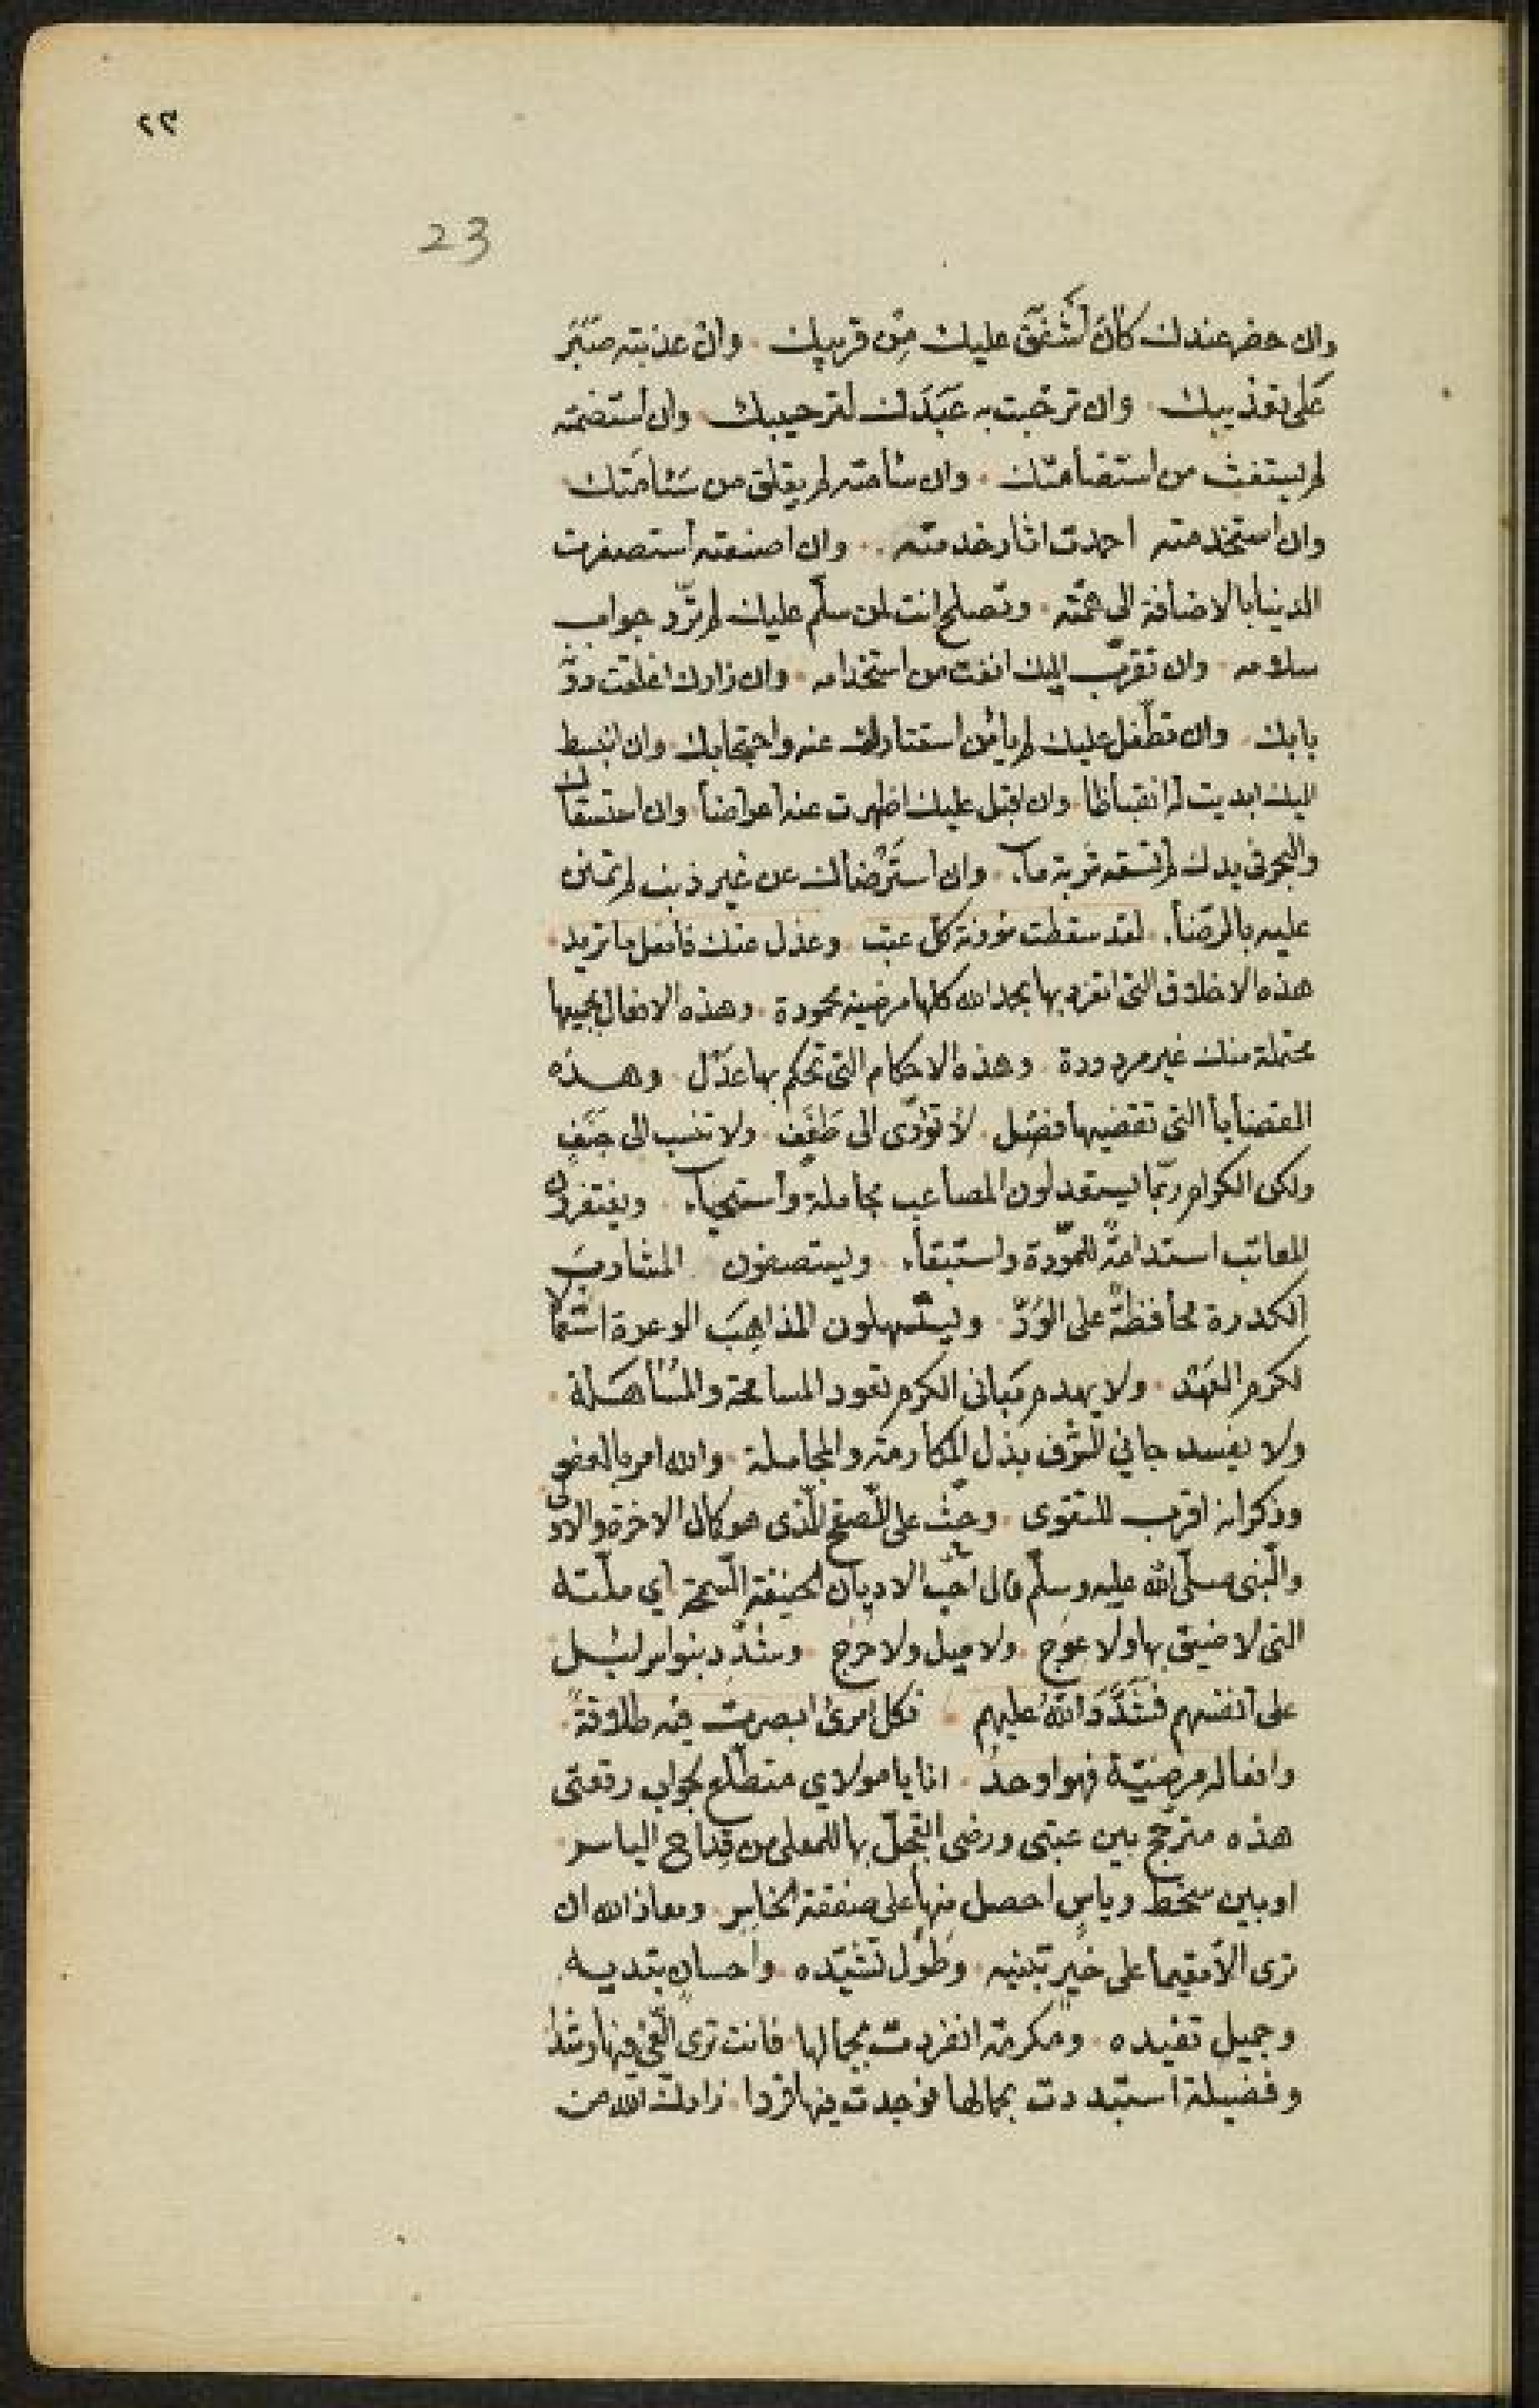 ٢٣
23
وان حضر عندك كان اشفق عليك من قريبك . وان عذبته صبر
على تعذيبك . وان ترحبت به عبدك لترحيبك . وان استضمته
لم يستغث من استضامتك . وان شأمته لم يقلق من شئامتك
وان استخدمته احمدت اثار خدمته . وان اصنعته استصغرت
الدنيا بالاضافة الى همته . وتصلح انت لمن سلّم عليك لم تردّ جواب
سلامه . وان تقرّب اليك انفت من استخدامه . وان زارك اغلقت دونه
بابك . وان تطفّل عليك لم يأمن استتارك عنه واحتجابك . وان انبسط
اليك ابديت له انقباظا . وان اقبل عليك اظهرت عنه اعراضا . وان استسقاك
والبحر في يدك لم تسقه شربة ماء . وان استرضاك عن غير ذنب لم تمنن
عليه بالرضا . لقد سقطت مؤونة كل عتب . وعذل عنك فافعل ما تريد .
هذه الاخلاق التي انفرد بها بحمد الله كلها مرضية محمودة . وهذه الافعال بجميعها
محتملة منك غير مردودة . وهذه الاحكام التي تحكم بها عدل . وهذه
القضايا التي تقضيها فضل . لا تؤدّى الى طفف . ولا تنسب الى جنف
ولكن الكرام ربّما يستعدلون المصاعب مجاملة واستحياء . ويغتفرون
المعائب استدامة للمودة واستبقاء . ويستصفون المشارب
الكدرة محافظة على الودّ . ويستسهلون المذاهب الوعرة اشتمالا
لكرم العهد . ولا يهدم مباني الكرم تعود المسامحة والمساهلة .
ولا يفسد جاني الشرف بذل المكارمة والمجاملة . والله امر بالعفو
وذكر انه اقرب للتقوى . وحثّ على الصفح الذى هو كمال الاخرة والاولى .
والنبى صلّى الله عليه وسلّم قال احبّ الاديان الحنيفة السمحة اي ملّته
التى لا ضيق بها ولا عوج . ولا ميل ولا حرج . وشدّد بنو اسرائيل
على انفسهم فشدّد الله عليهم . فكل امرئ ابصرت فيه طلاقة .
وافعاله مرضيّة فهو اوحد . انا يا مولاي متطلّع لجواب رقعتى
هذه مترجّح بين عتبى ورضى اتجمّل بها للمعلى من قداح الياسر .
او بين سخط وياس احصل منها على صفقة الخاسر . ومعاذ الله ان
ترى الا مقيما على خير تبنيه . وطول تشيّده . واحسان بتديه .
وجميل تفيده . ومكرمة انفردت بجمالها . فانت ترى الغيّ فيها رشدا
وفضيلة استبددت بكمالها فوجدت فيها فردا . زادك الله من